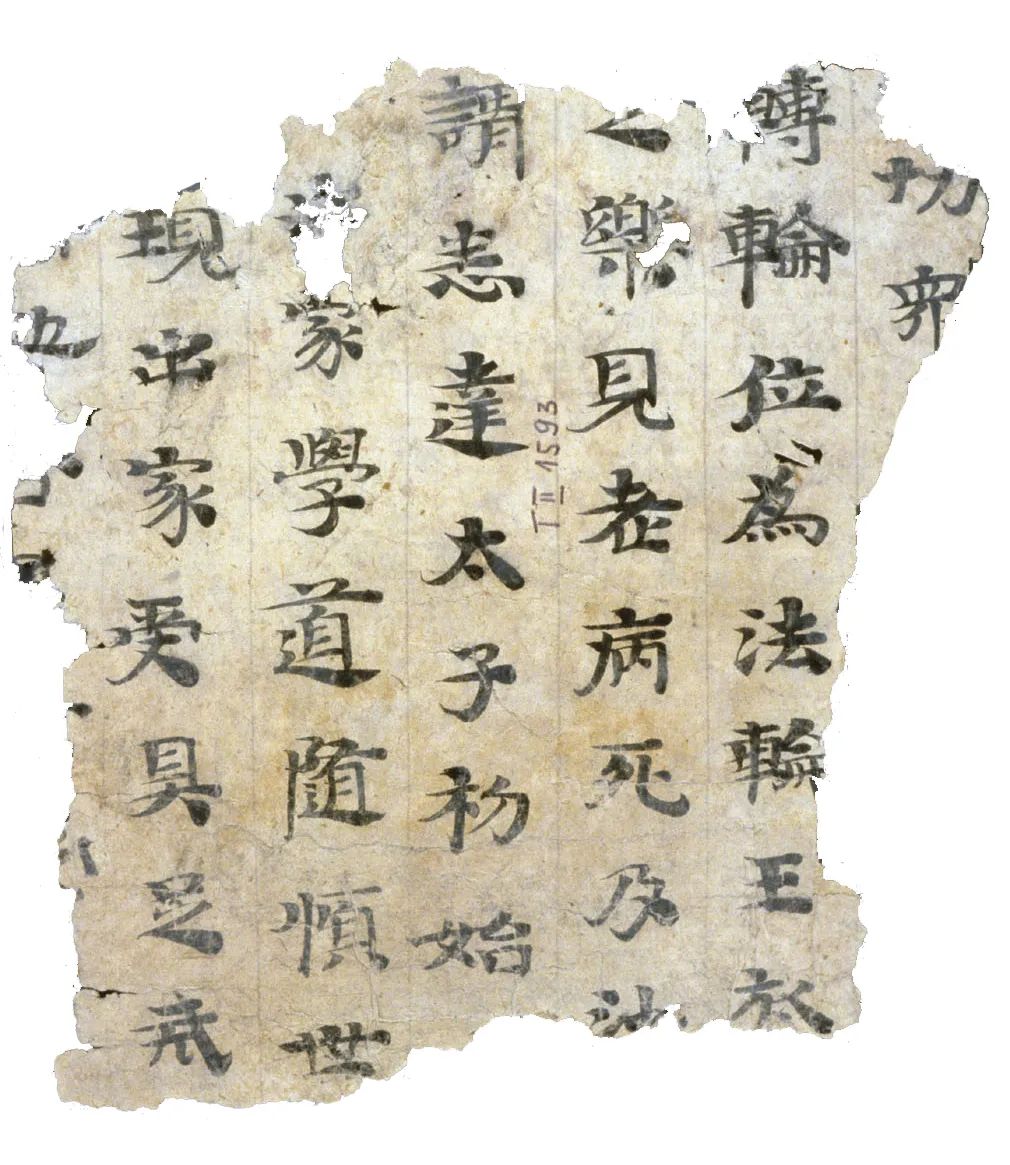 切衆
轉輪位為法輪王於
樂見老病死及沙
謂悉達太子初始
家學道隨慎世
現出家受具足戒
T II 1593